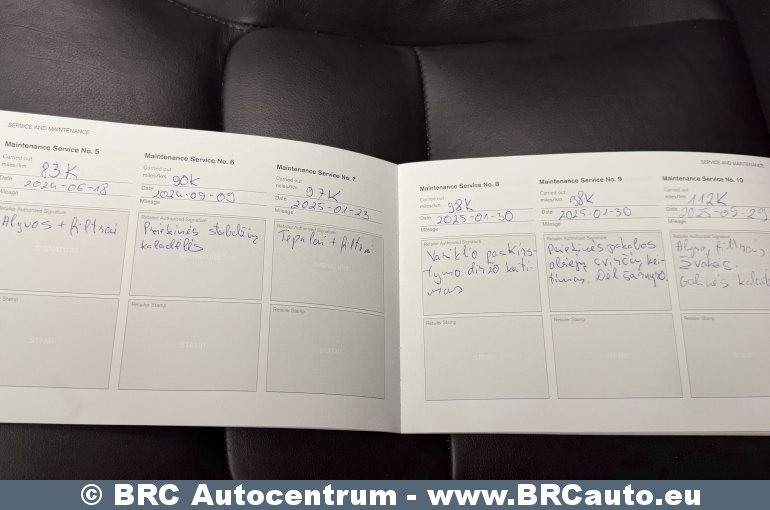 SERVICE AND MAINTENANCE
Maintenance Service No. 5
Carried out
miles/km 83K
Date 2024-06-18
Mileage
Retailer Authorised Signature
Alyvos + filtrai
Retailer Stamp
STAMP
Maintenance Service No. 6
Carried out
miles/km 90K
Date 2024-09-09
Mileage
Retailer Authorised Signature
Priekinės stabdžių
kaladėlės
Retailer Stamp
STAMP
Maintenance Service No. 7
Carried out
miles/km 97K
Date 2025-01-23
Mileage
Retailer Authorised Signature
Tepalai + filtrai
Retailer Stamp
STAMP
SERVICE AND MAINTENANCE
Maintenance Service No. 8
Carried out
miles/km 98K
Date 2025-01-30
Mileage
Retailer Authorised Signature
Variklio paskirs-
tymo diržo keiti-
mas
Retailer Stamp
STAMP
Maintenance Service No. 9
Carried out
miles/km 98K
Date 2025-01-30
Mileage
Retailer Authorised Signature
Priekinės pakabos
abiejų svirčių kei-
timas.
Retailer Stamp
STAMP
Maintenance Service No. 10
Carried out
miles/km 112K
Date 2025-09-29
Mileage
Retailer Authorised Signature
Alyva, filtrai,
Žvakės.
Galinės
Retailer Stamp
STAMP
© BRC Autocentrum - www.BRCauto.eu